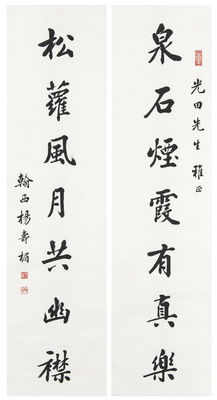 泉石煙霞有真樂
光田先生雅正
松蘿風月共幽襟
翰西楊壽楣